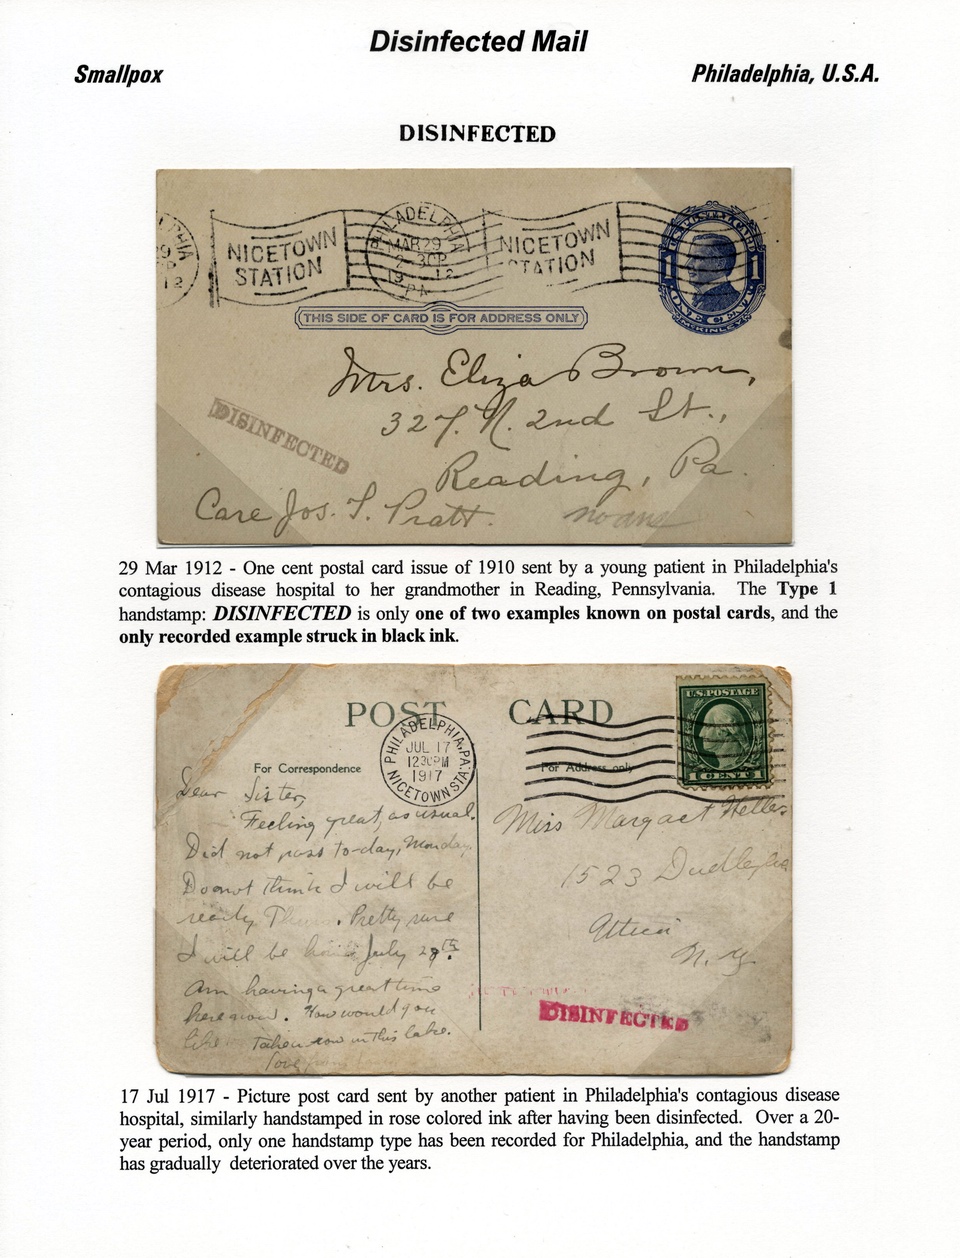 Disinfected Mail
Smallpox
Philadelphia, U.S.A.
DISINFECTED
NICETOWN STATION
PHILADELPHIA
MAR 29
2-30P
1912
PA
NICETOWN STATION
U.S. POSTAL CARD
1 1
ONE CENT
McKINLEY
THIS SIDE OF CARD IS FOR ADDRESS ONLY
Mrs. Eliza Brown,
327 N. 2nd St.,
DISINFECTED
Reading, Pa.
Care Jos. T. Pratt.
no ans
29 Mar 1912 - One cent postal card issue of 1910 sent by a young patient in Philadelphia's
contagious disease hospital to her grandmother in Reading, Pennsylvania. The Type 1
handstamp: DISINFECTED is only one of two examples known on postal cards, and the
only recorded example struck in black ink.
POST CARD
U.S. POSTAGE
1 CENT 1
PHILADELPHIA, PA.
JUL 17
1230PM
1917
NICETOWN STA.
For Correspondence
For Address only
Dear Sister,
Feeling great, as usual.
Did not pass to-day, Monday.
Do not think I will be
ready Thurs. Pretty sure
I will be home July 28th.
Am having a great time
here now. How would you
like taken row in this lake.
Love from
Miss Margaet Heller
1523 Dudley
Attica
N.Y.
DISINFECTED
17 Jul 1917 - Picture post card sent by another patient in Philadelphia's contagious disease
hospital, similarly handstamped in rose colored ink after having been disinfected. Over a 20-
year period, only one handstamp type has been recorded for Philadelphia, and the handstamp
has gradually deteriorated over the years.